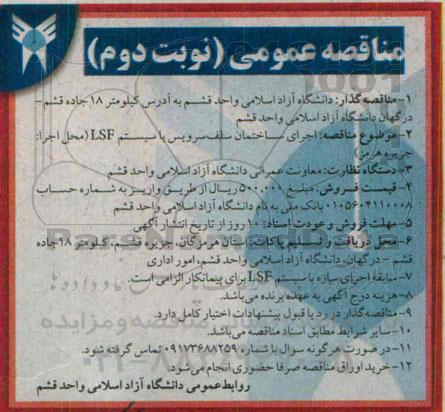 مناقصه عمومی (نوبت دوم)
۱- مناقصه گذار: دانشگاه آزاد اسلامی واحد قشم به آدرس کیلومتر ۱۸ جاده قشم -
درگهان دانشگاه آزاد اسلامی واحد قشم
۲- موضوع مناقصه: اجرای ساختمان سلف سرویس با سیستم LSF (محل اجرا:
جزیره هرمز)
۳- دستگاه نظارت: معاونت عمرانی دانشگاه آزاد اسلامی واحد قشم
۴- قیمت فروش: مبلغ ۵۰۰,۰۰۰ ریال از طریق واریز به شماره حساب
۰۱۰۵۶۰۴۱۱۰۰۰۸ بانک ملی به نام دانشگاه آزاد اسلامی واحد قشم
۵- مهلت فروش و عودت اسناد: ۱۰ روز از تاریخ انتشار آگهی
۶- محل دریافت و تسلیم پاکات: استان هرمزگان، جزیره قشم، کیلومتر ۱۸ جاده
قشم - درگهان، دانشگاه آزاد اسلامی واحد قشم، امور اداری
۷- سابقه اجرای سازه با سیستم LSF برای پیمانکار الزامی است.
۸- هزینه درج آگهی به عهده برنده می‌باشد.
۹- مناقصه گذار در رد یا قبول پیشنهادات اختیار کامل دارد.
۱۰- سایر شرایط مطابق اسناد مناقصه می‌باشد.
۱۱- در صورت هرگونه سوال با شماره ۰۹۱۷۳۶۸۸۲۵۹ تماس گرفته شود.
۱۲- خرید اوراق مناقصه صرفا حضوری انجام می‌شود.
روابط عمومی دانشگاه آزاد اسلامی واحد قشم